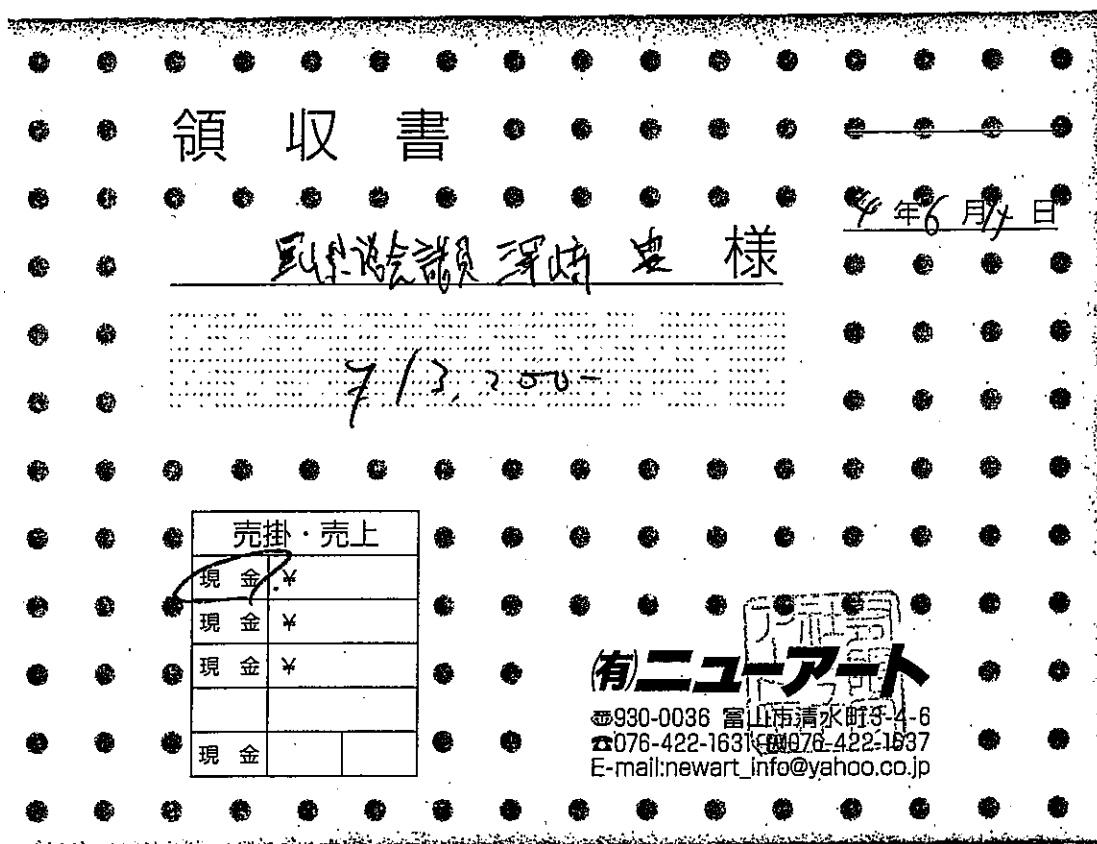 領収書
4年6月14日
富山県議会議員 澤崎 豊 様
¥13,200-
売掛・売上
現金 ¥
現金 ¥
現金 ¥
現金
(有)ニューアート
〠930-0036 富山市清水町3-4-6
☎076-422-1631 FAX076-422-1637
E-mail:newart_info@yahoo.co.jp